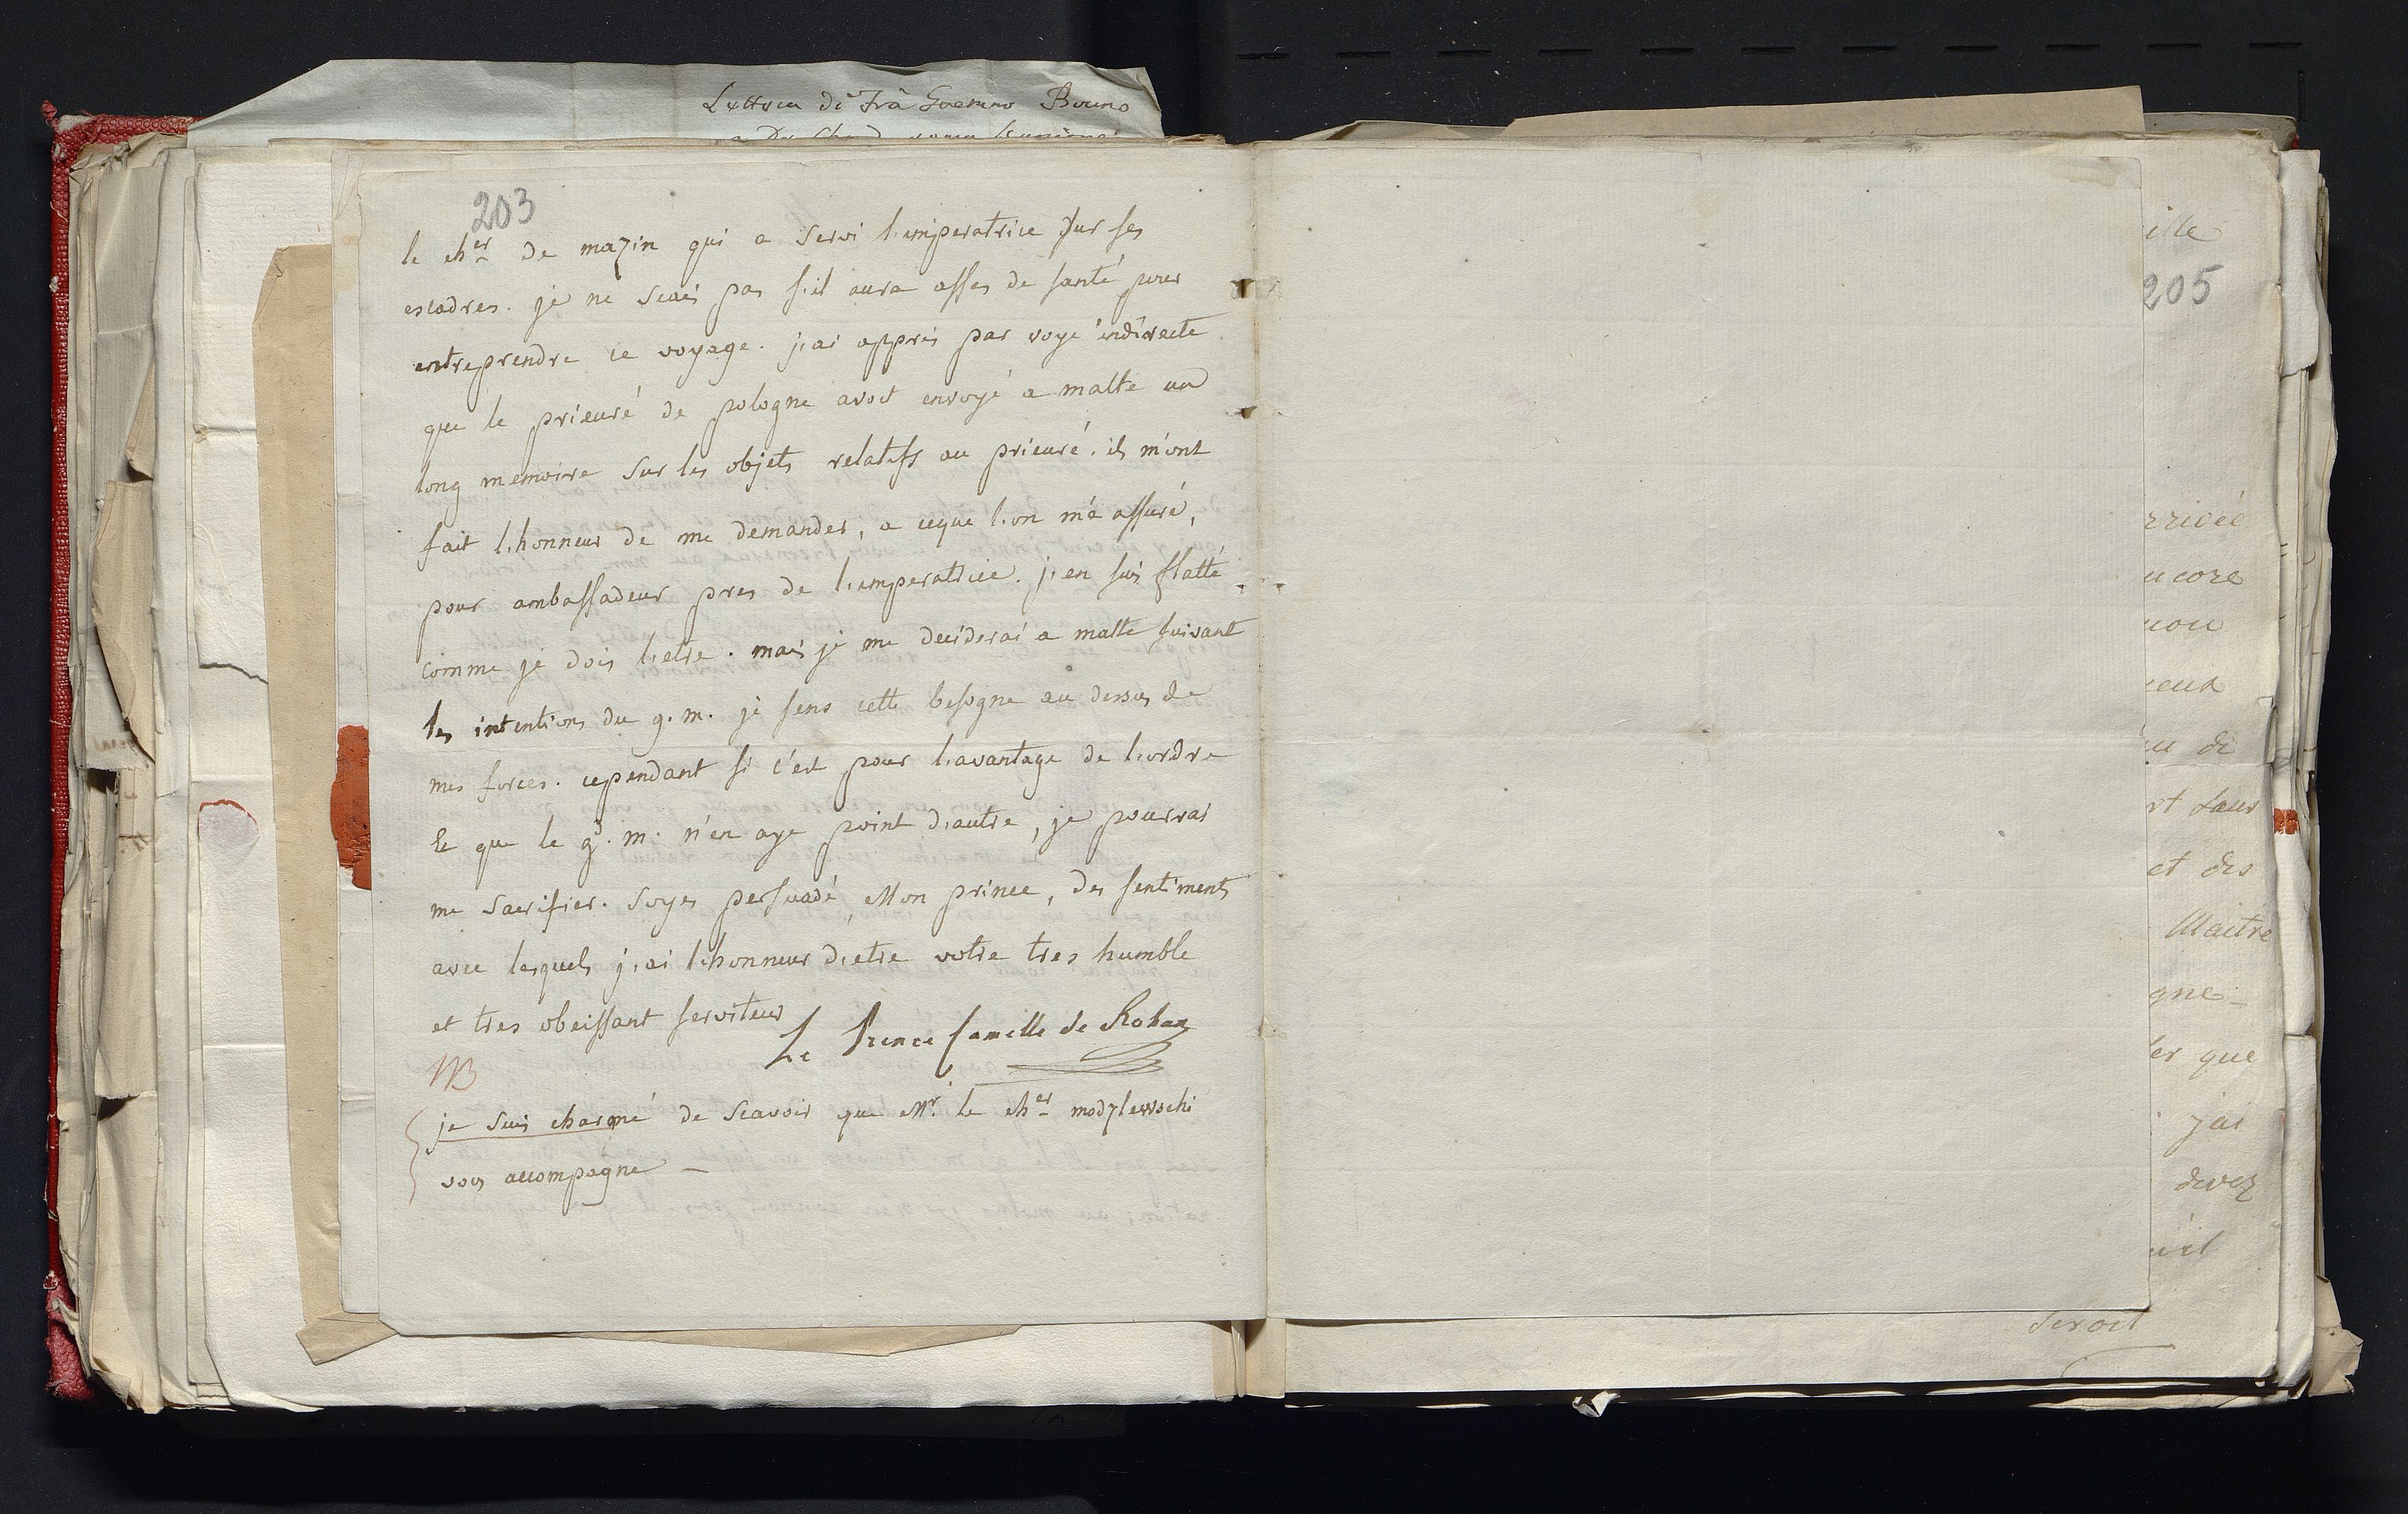 Lettera di Frà Bruno
203
le cher de mazin qui a servi l'imperatrice sur ses
escadres. je ne scais pas s'il aura asses de santé pour
entreprendre ce voyage. j'ai appris par voye indirecte
que le prieuré de pologne avoit envoyé a malte un
long memoire sur les objets relatifs au prieuré. ils m'ont
fait l'honneur de me demander, a ceque l'on m'a assuré,
pour ambassadeur pres de l'imperatrice. j'en suis flatté
comme je dois l'etre. mais je me deciderai a malte suivant
les intentions du g. m. je sens cette besogne au dessus de
mes forces. cependant si c'est pour l'avantage de l'ordre
Et que le gd. m. n'en aye point d'autre, je pourrai
me sacrifier. soyes persuadé, Mon prince, des sentiments
avec lesquels j'ai l'honneur d'etre votre tres humble
et tres obeissant serviteur
Le Prince Camille de Rohan
NB
je suis charmé de scavoir que Mr. le cher modzlewschi
vous accompagne —
ille
205
rrivée
ncore
de
et des
Maitre
gne
er que
jai
devez
seroit